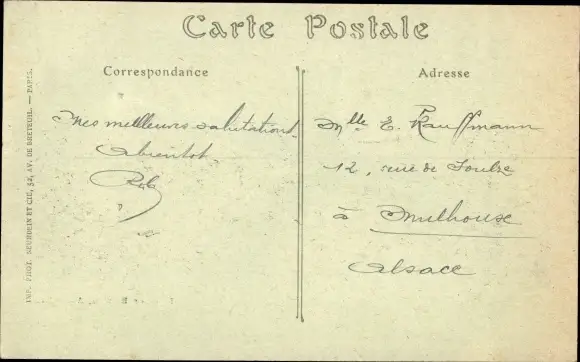 Carte Postale
Correspondance
Adresse
Mes meilleures salutations.
Abientot.
Mlle E. Kauffmann
12, rue de Soultz
à Mulhouse
Alsace
IMP. PHOT. NEURDEIN ET CIE, 52, AV. DE BRETEUIL. — PARIS.